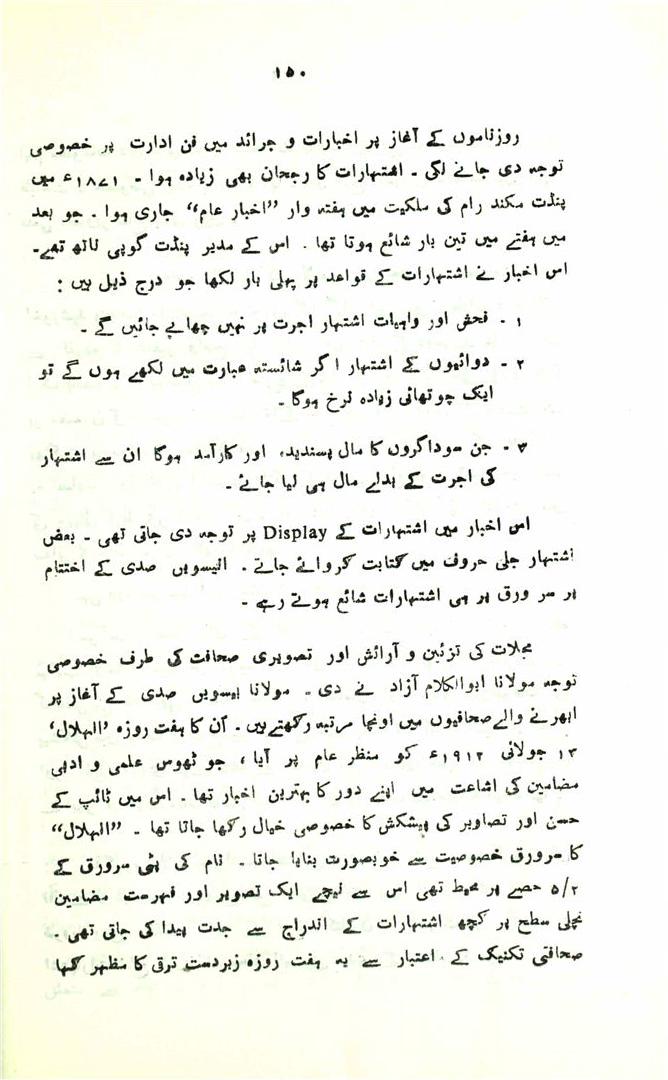 ۱۵۰
روزناموں کے آغاز پر اخبارات و جرائد میں فن ادارت پر خصوصی
توجہ دی جانے لگی ۔ اشتہارات کا رجحان بھی زیادہ ہوا ۔ ۱۸۷۱ء میں
پنڈت مکند رام کی ملکیت میں ہفتہ وار ”اخبار عام“ جاری ہوا ۔ جو بعد
میں ہفتے میں تین بار شائع ہوتا تھا ۔ اس کے مدیر پنڈت گوپی ناتھ تھے۔
اس اخبار نے اشتہارات کے قواعد پر پہلی بار لکھا جو درج ذیل ہیں :
۱ ۔ فحش اور واہیات اشتہار اجرت پر نہیں چھاپے جائیں گے ۔
۲ ۔ دوائیوں کے اشتہار اگر شائستہ عبارت میں لکھے ہوں گے تو
ایک چوتھائی زیادہ نرخ ہوگا ۔
۳ ۔ جن سوداگروں کا مال پسندیدہ اور کارآمد ہوگا ان سے اشتہار
کی اجرت کے بدلے مال ہی لیا جائے ۔
اس اخبار میں اشتہارات کے Display پر توجہ دی جاتی تھی ۔ بعض
اشتہار جلی حروف میں کتابت کروائے جاتے ۔ انیسویں صدی کے اختتام
پر سر ورق پر ہی اشتہارات شائع ہوتے رہے ۔
مجلات کی تزئین و آرائش اور تصویری صحافت کی طرف خصوصی
توجہ مولانا ابوالکلام آزاد نے دی ۔ مولانا بیسویں صدی کے آغاز پر
ابھرنے والے صحافیوں میں اونچا مرتبہ رکھتے ہیں ۔ ان کا ہفت روزہ ’الہلال‘
۱۳ جولائی ۱۹۱۲ء کو منظر عام پر آیا ، جو ٹھوس علمی و ادبی
مضامین کی اشاعت میں اپنے دور کا بہترین اخبار تھا ۔ اس میں ٹائپ کے
حسن اور تصاویر کی پیشکش کا خصوصی خیال رکھا جاتا تھا ۔ ”الہلال“
کا سرورق خصوصیت سے خوبصورت بنایا جاتا ۔ نام کی پٹی سرورق کے
۵/۲ حصے پر محیط تھی اس سے نیچے ایک تصویر اور فہرست مضامین
نچلی سطح پر کچھ اشتہارات کے اندراج سے جدت پیدا کی جاتی تھی ۔
صحافتی تکنیک کے اعتبار سے یہ ہفت روزہ زبردست ترقی کا مظہر کہا